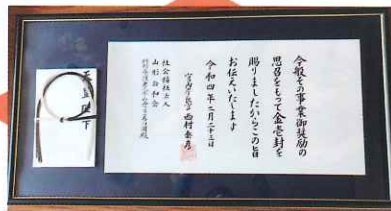 今般その事業御奨励の
思召をもって金壱封を
賜りましたからこの旨
お伝えいたします
令和四年二月二十三日
宮内庁長官 西村泰彦
社会福祉法人
山形公和会
天皇陛下